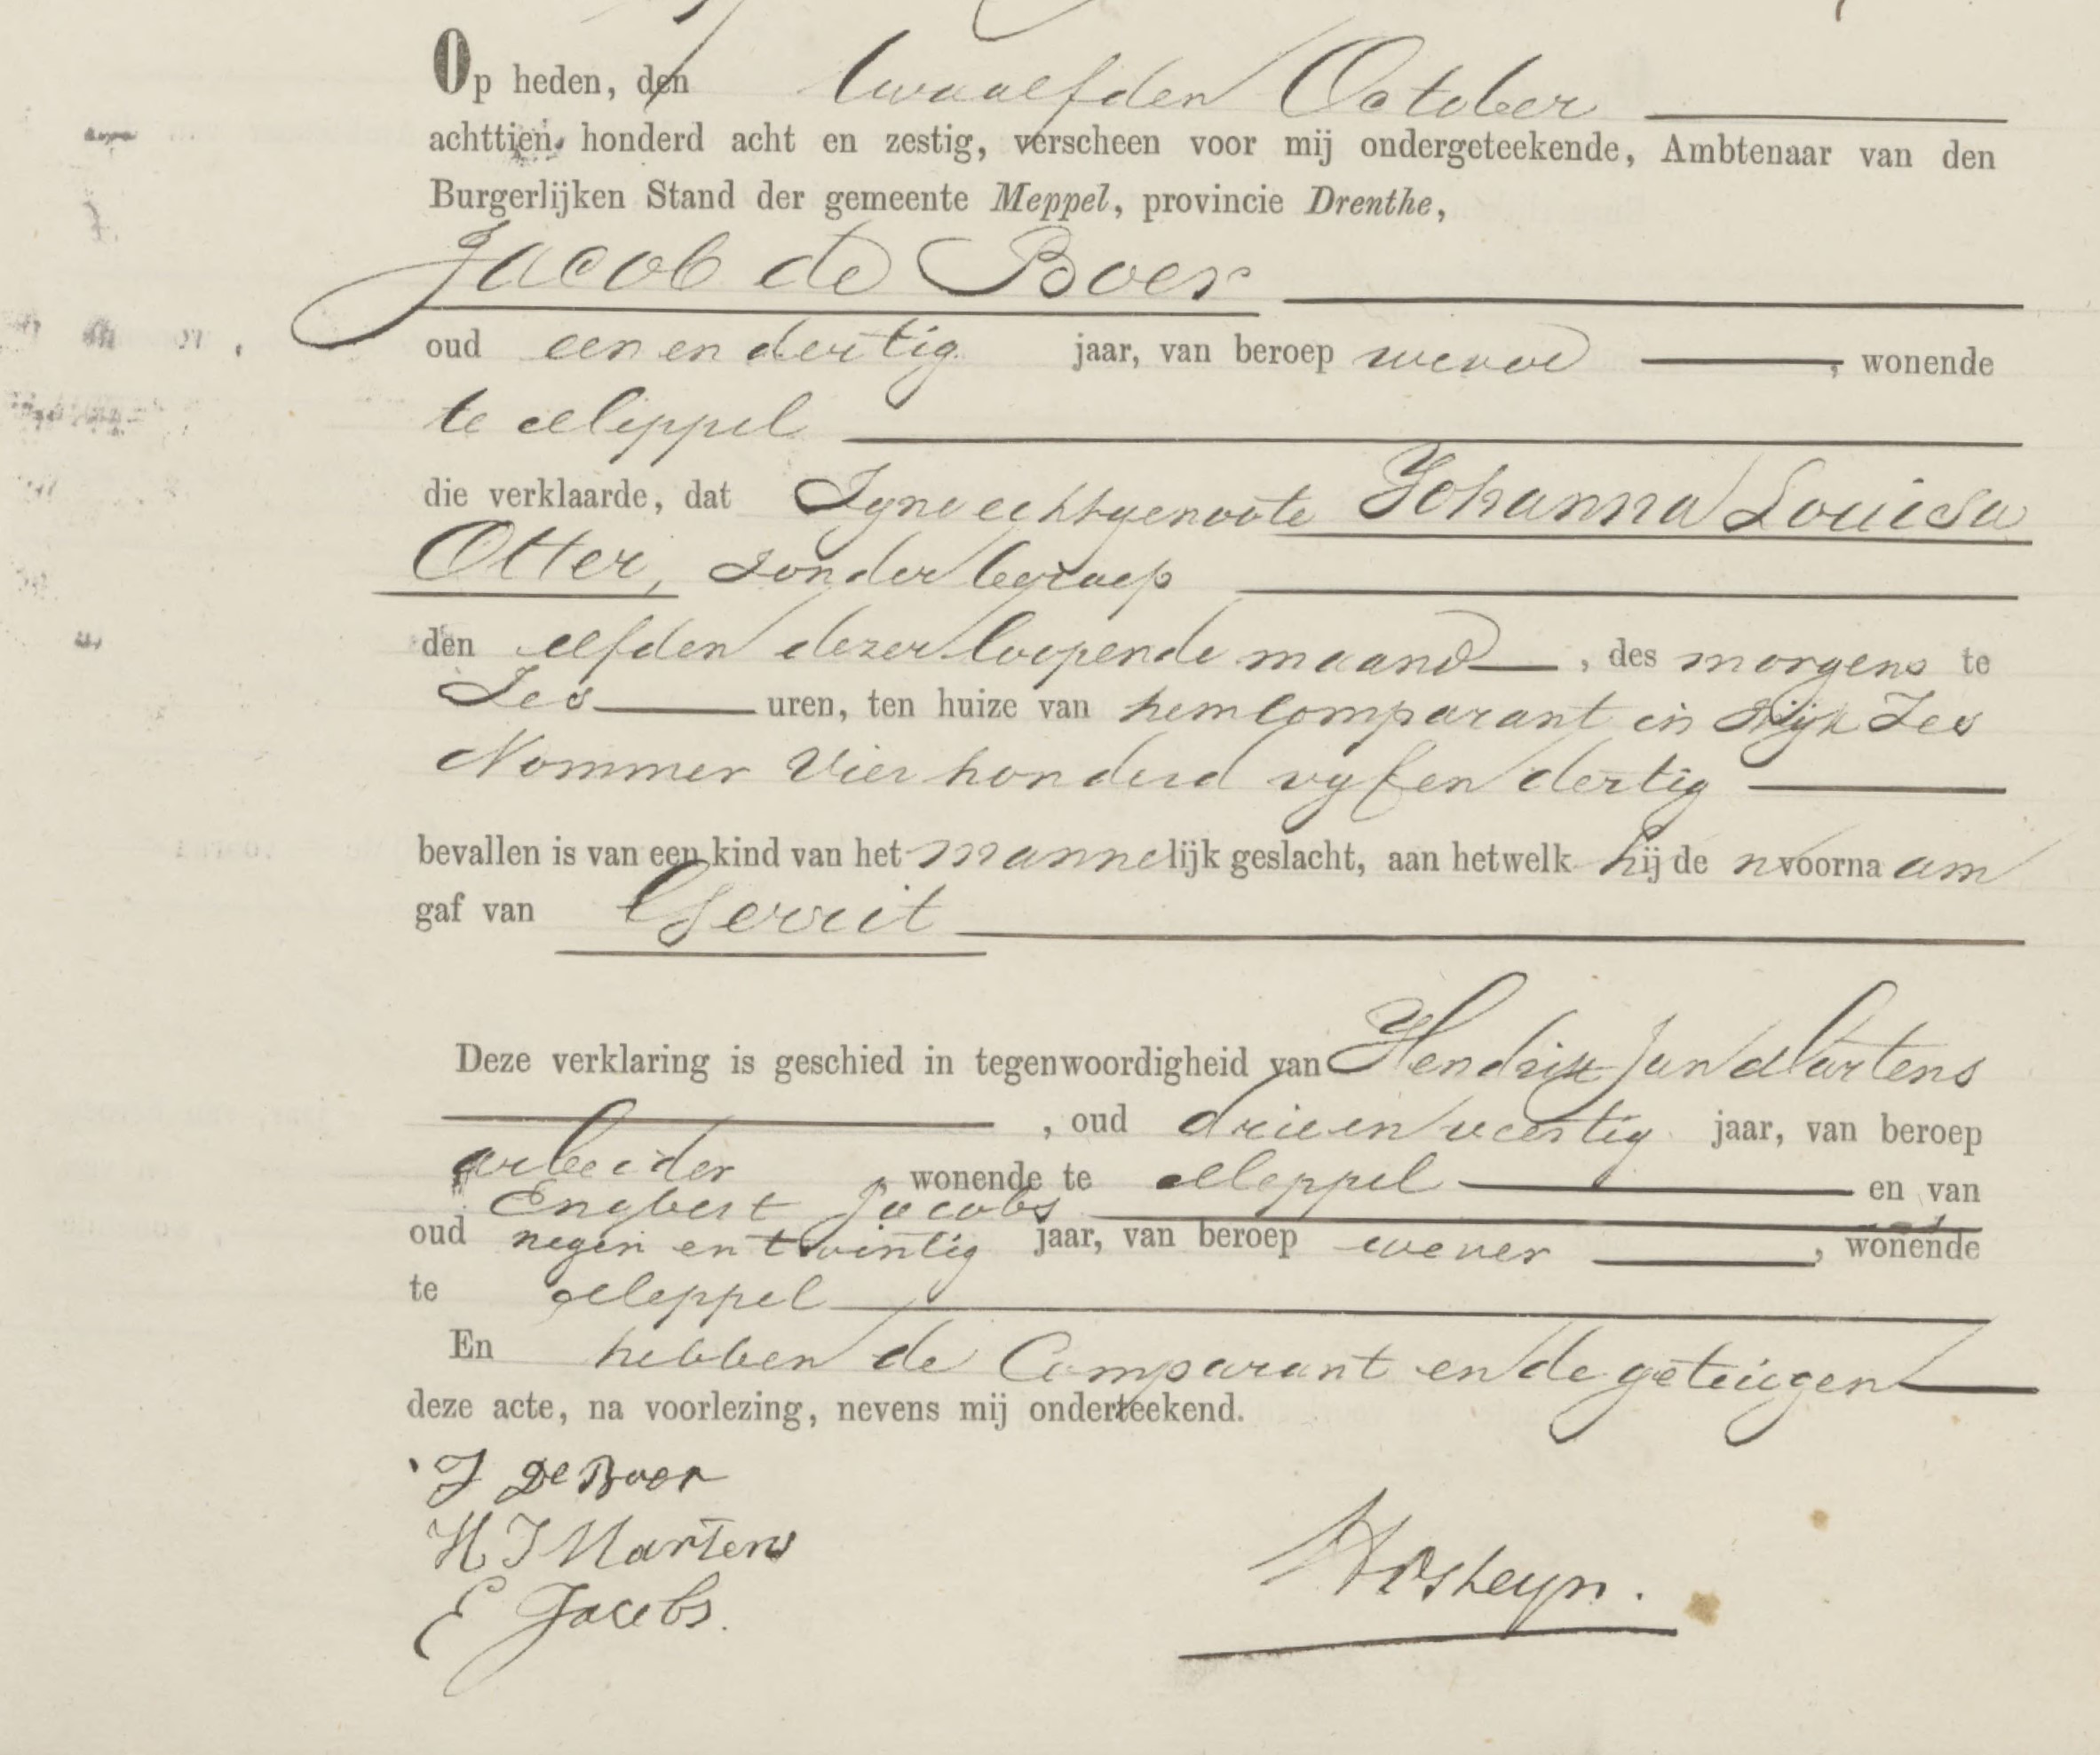 Op heden, den twaalfden October
achttien honderd acht en zestig, verscheen voor mij ondergeteekende, Ambtenaar van den
Burgerlijken Stand der gemeente Meppel, provincie Drenthe,
Jacob de Boer
oud een en dertig jaar, van beroep , wonende
te Meppel
die verklaarde, dat Zyne echtgenoote Johanna Louisa
Otter, zonder beroep
den elfden dezer loopende maand , des morgens te
Zes uren, ten huize van hem Comparant in Wyk Zes
Nommer Vier honderd vyf en dertig
bevallen is van een kind van het mannelijk geslacht, aan hetwelk hij de n voornaam
gaf van Gerrit
Deze verklaring is geschied in tegenwoordigheid van Hendrik Jan Martens
, oud drie en veertig jaar, van beroep
arbeider , wonende te Meppel en van
Engbert Jacobs
oud negen en twintig jaar, van beroep wever , wonende
te Meppel
En hebben de Comparant en de getuigen
deze acte, na voorlezing, nevens mij onderteekend.
J De Boer
H J Martens
E Jacobs.